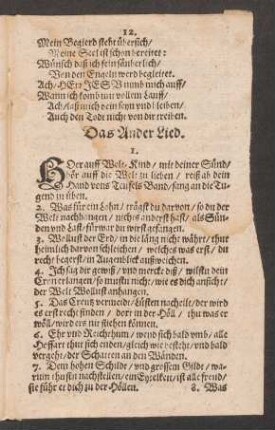 12.
Mein Begierd stehr übersich/
Meine Seel ist schon bereitet:
Wünsch daß ich fein säuberlich/
Von den Engeln werd begleitet.
Ach/ HErr JESU nimb mich auff/
Wann ich komb im vollem Lauff/
Ach/ laß mich dein seyn und bleiben/
Auch den Todt nicht von dir treiben.
Das Ander Lied.
1.
HOer auff Welt-Kind/ mit deiner Sünd/
hör auff die Welt zu lieben/ reiß ab dein
Hand vons Teufels Band/ fang an die Tu-
gend zu üben.
2. Was für ein Lohn/ trägst du darvon/ so du der
Welt nachhangen/ nichts anderst hast/ als Sün-
den und Last/ fürwar du wirst gefangen.
3. Wollust der Erd/ in die läng nicht währt/ thut
heimlich darvon schleichen/ welches was erst/ du
recht begerst/ in Augenblick außweichen.
4. Ich sag dir gewiß/ und mercke diß/ wilstu dein
Cron erlangen/ so mustu nicht/ wie es dich anficht/
der Welt Wollust anhangen.
5. Das Creutz vermeidt/ Lüsten nacheilt/ der wird
es erst recht finden/ dort in der Höll/ thu was er
wöll/ wird ers nit fliehen können.
6. Ehr und Reichthum/ wend sich bald umb/ alle
Hoffart thut sich enden/ gleich wie besteht/ und bald
vergeht/ der Schatten an den Wänden.
7. Dem hohen Schilde/ und grossem Gilde/ wa-
rum thustu nachstellen/ ein Eytelkeit/ ist alle freud/
sie führt er dich zu der Höllen.
8. Was